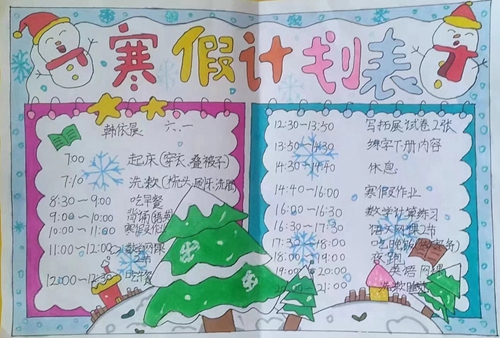 寒假计划表
韩依晨 六、一
7:00 起床(穿衣、叠被子)
7:10 洗漱(梳头、刷牙、洗脸)
8:30-9:00 吃早餐
9:00-10:00 背诵
10:00-11:00 寒假作业
11:00-12:00 数学网课
2节
12:00-12:30 吃饭
12:30-13:50 写拓展试卷2张
13:50-14:30 练字下册内容
14:30-14:40 休息
14:40-16:00 寒假作业
16:00-16:30 数学计算练习
16:30-17:30 语文网课2节
17:30-18:00 吃晚饭
18:00-19:00 夜跑
19:00-20:00 英语网课
21:00 洗漱睡